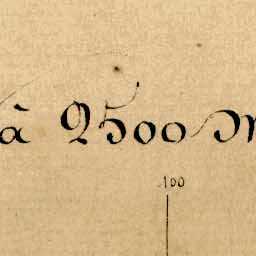 à 2500 M
100